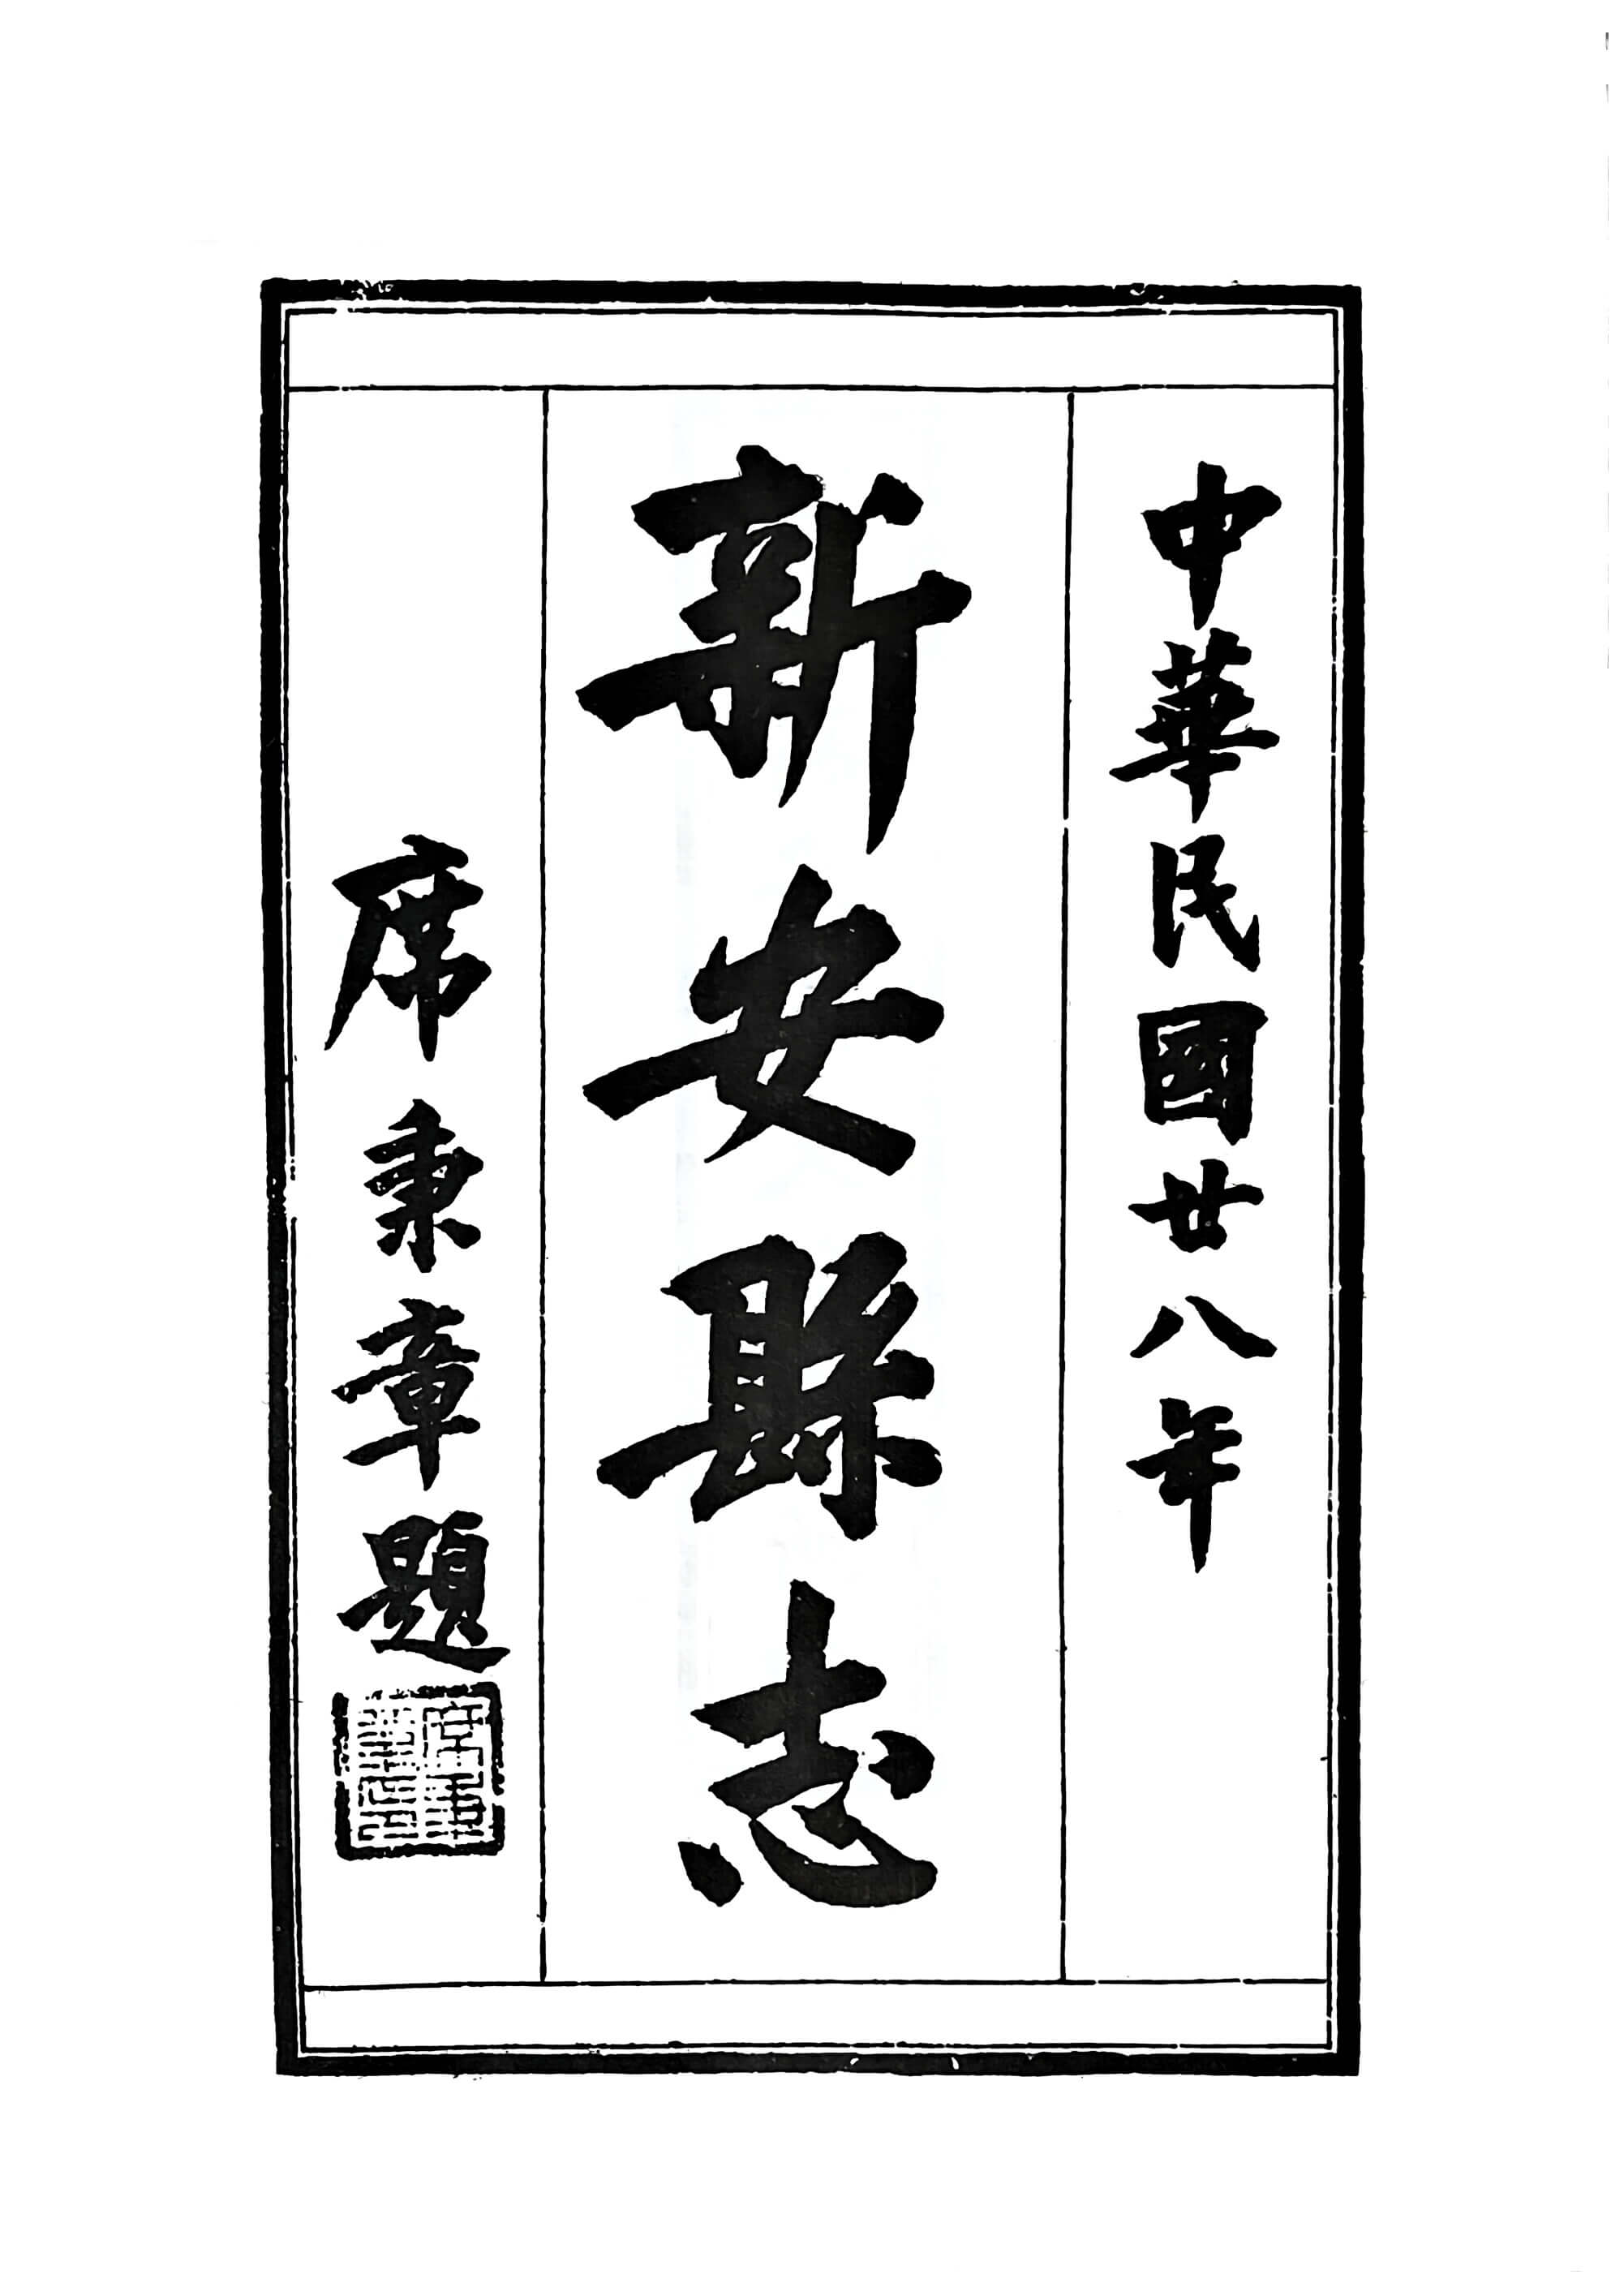 中華民國廿八年
新安縣志
席秉章題